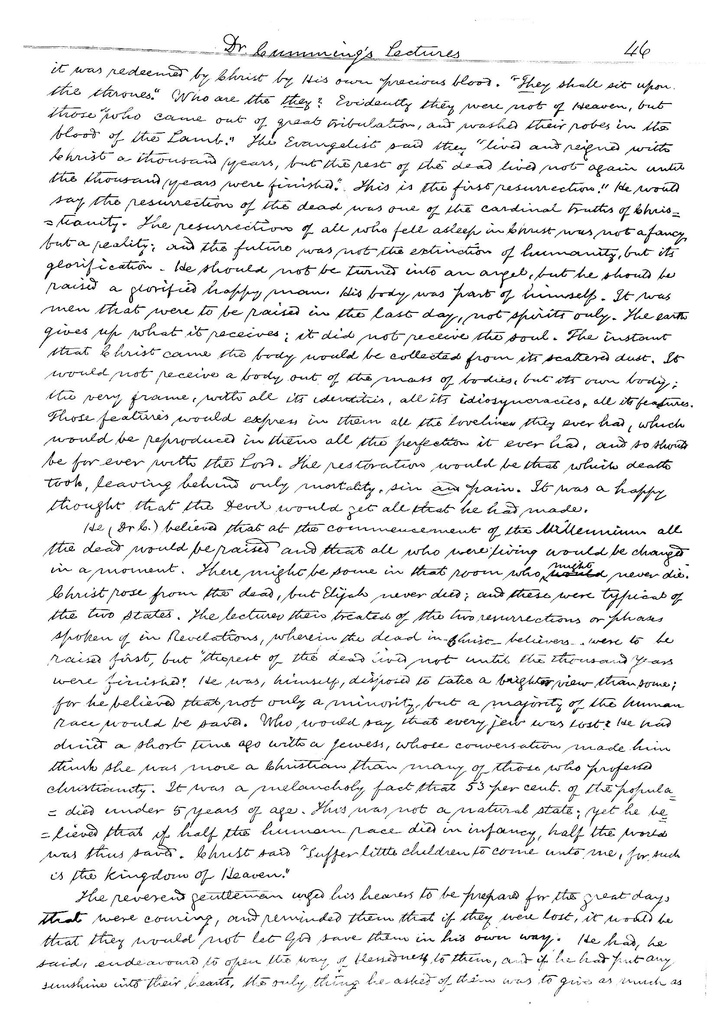 Dr Cumming's Lectures 46
it was redeemed by Christ by His own precious blood. "They shall sit upon
the thrones." Who are the they? Evidently they were not of Heaven, but
those "who came out of great tribulation, and washed their robes in the
blood of the Lamb." The Evangelist said they "lived and reigned with
Christ a thousand years, but the rest of the dead lived not again until
the thousand years were finished." This is the first resurrection." He would
say the resurrection of the dead was one of the cardinal truths of Chris=
=tianity. The resurrection of all who fell asleep in Christ was not a fancy
but a reality; and the future was not the extinction of humanity, but its
glorification. He should not be turned into an angel, but he should be
raised a glorified happy man. His body was part of himself. It was
men that were to be raised in the last day, not spirits only. The earth
gives up what it receives; it did not receive the soul. The instant
that Christ came the body would be collected from its scattered dust. It
would not receive a body out of the mass of bodies, but its own body;
the very frame, with all its identities, all its idiosyncracies, all its features.
Those features would express in them all the loveliness they ever had, which
would be reproduced in them all the perfection it ever had, and so should
be for ever with the Lord. The restoration would be that which death
took, leaving behind only mortality, sin and pain. It was a happy
thought that the Devil would get all that he had made.
He (Dr C.) believed that at the commencement of the Millennium all
the dead would be raised and that all who were living would be changed
in a moment. There might be some in that room who might never die.
Christ rose from the dead, but Elijah never died; and these were typical of
the two states. The lectures then treated of the two resurrections or phases
spoken of in Revelations, wherein the dead in Christ - believers - were to be
raised first, but "the rest of the dead lived not until the thousand years
were finished! He was, himself, disposed to take a brighter view than some;
for he believed that, not only a minority, but a majority of the human
race would be saved. Who would say that every jew was lost? He had
dined a short time ago with a Jewess, whose conversation made him
think she was more a Christian than many of those who professed
christianity. It was a melancholy fact that 53 per cent. of the popula=
= died under 5 years of age. This was not a natural state; yet he be
=lieved that if half the human race died in infancy, half the world
was thus saved. Christ said "Suffer little children to come unto me, for such
is the Kingdom of Heaven."
The reverend gentleman urged his hearers to be prepared for the great days
that were coming, and reminded them that if they were lost, it would be
that they would not let God save them in his own way. He had, he
said, endeavored to open the way of blessedness to them, and if he had put any
sunshine into their hearts, the only thing he asked of them was to give as much as